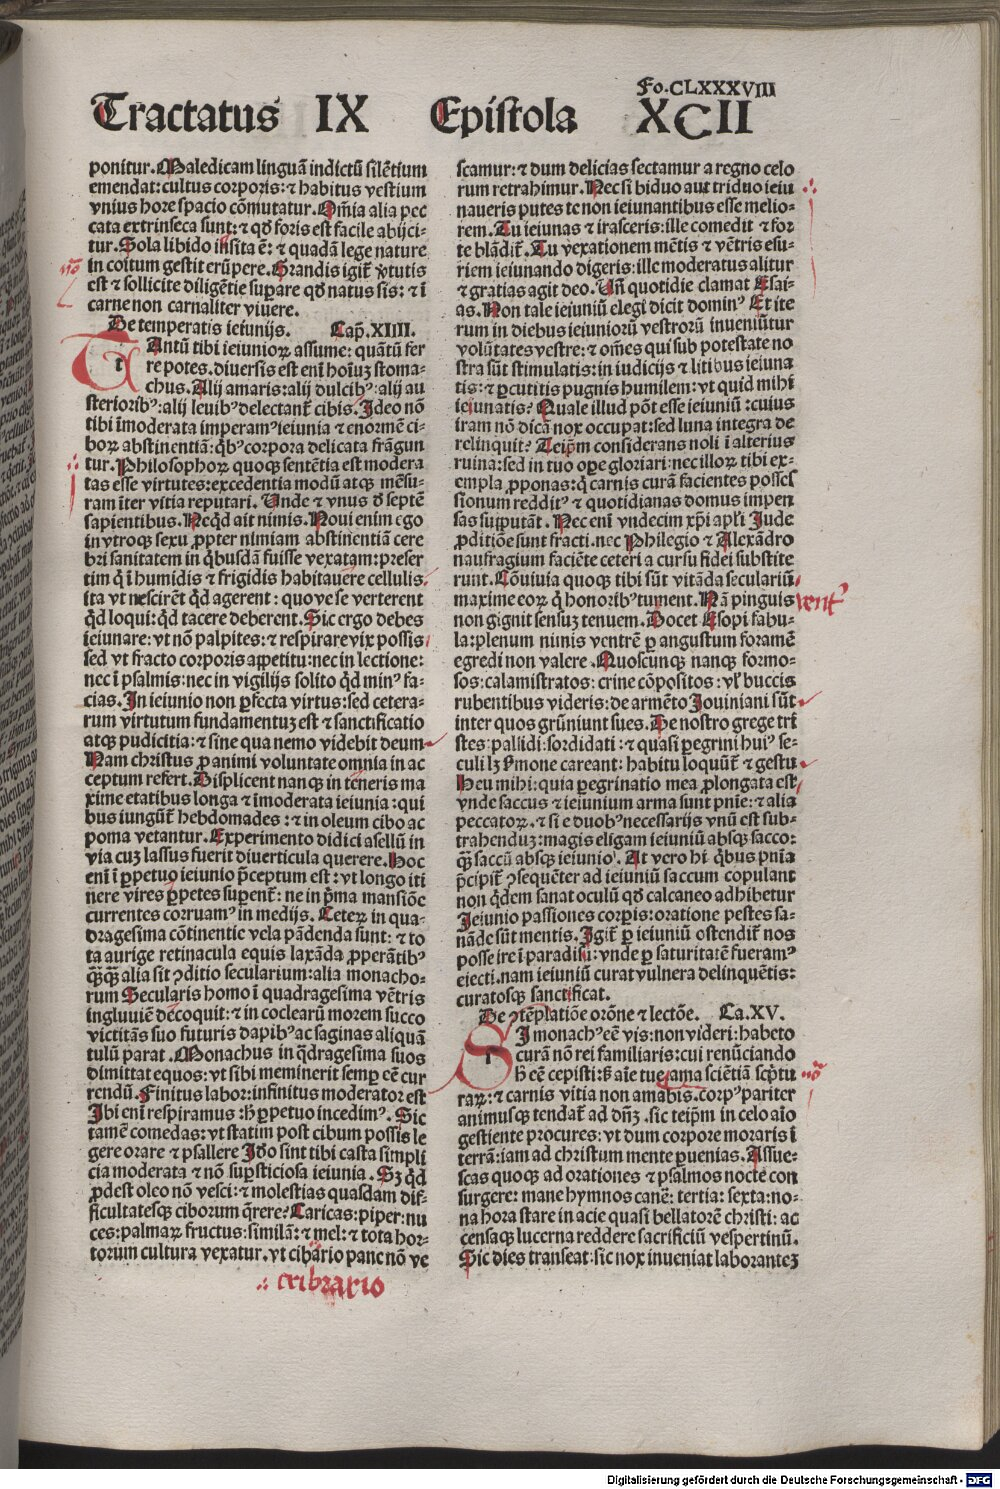 Fo. CLXXXVIII
Tractatus IX Epistola XCII
ponitur. Maledicam linguã indictũ silẽtium
emendat: cultus corporis: ⁊ habitus vestium
vnius hore spacio cõmutatur. Om̃ia alia pec
cata extrinseca sunt: ⁊ qđ foris est facile abijci-
tur. Sola libido ĩsita ẽ: ⁊ quadã lege nature
in coitum gestit erũpere. Grandis igiť ṽtutis
est ⁊ sollicite diligẽtie supare qđ natus sis: ⁊ ĩ
carne non carnaliter viuere.
De temperatis ieiunijs. Cap̃. XIIII.
TAntũ tibi ieiunioꝝ assume: quãtũ fer
re potes. diuersis est enĩ hoĩuꝫ stoma-
chus. Alij amaris: alij dulcibꝰ: alij au
steriorib̾: alij leuib̾ delectant̃ cibis. Ideo nõ
tibi ĩmoderata imperam̾ ieiunia ⁊ enormẽ ci-
boꝝ abstinentiã: q̃b̾ corpora delicata frãgun
tur. Philosophoꝝ quoqꝫ sentẽtia est modera
tas esse virtutes: excedentia modũ atqꝫ mẽsu-
ram ĩter vitia reputari. Unde ⁊ vnus ð septẽ
sapientibus. Neq̃d ait nimis. Noui enim ego
in vtroqꝫ sexu ꝓpter nimiam abstinentiã cere
bri sanitatem in q̃busdã fuisse vexatam: preser
tim q̃ ĩ humidis ⁊ frigidis habitauere cellulis
ita vt nescirẽt q̃d agerent: quo ve se verterent
q̃d loqui: q̃d tacere deberent. Sic ergo debes
ieiunare: vt nõ palpites: ⁊ respirare vix possis
sed vt fracto corporis appetitu: nec in lectione:
nec ĩ psalmis: nec in vigilijs solito q̃d min̾ fa-
cias. In ieiunio non ꝑfecta virtus: sed cetera-
rum virtutum fundamentuꝫ est ⁊ sanctificatio
atqꝫ pudicitia: ⁊ sine qua nemo videbit deum
Nam christus ꝓ animi voluntate omnia in ac
ceptum refert. Displicent nanqꝫ in teneris ma
xime etatibus longa ⁊ ĩmoderata ieiunia: qui
bus iungũt̃ hebdomades: ⁊ in oleum cibo ac
poma vetantur. Experimento didici asellũ in
via cuꝫ lassus fuerit diuerticula querere. Hoc
enĩ ĩ ꝑpetuo ieiunio p̃ceptum est: vt longo iti
nere vires ꝑpetes supent̃: ne in p̃ma mansiõe
currentes corruam̾ in medijs. Ceteꝝ in qua-
dragesima cõtinentie vela pãdenda sunt: ⁊ to
ta aurige retinacula equis laxãda ꝓperãtib̾
q̃q̃ alia sit ꝯditio secularium: alia monacho-
rum Secularis homo ĩ quadragesima vẽtris
ingluuiẽ decoquit: ⁊ in coclearũ morem succo
victitãs suo futuris dapib̾ ac saginas aliquã
tulũ parat. Monachus in q̃dragesima suos
dimittat equos: vt sibi meminerit semꝑ eẽ cur
rendũ. Finitus labor: infinitus moderator est
Ibi enĩ respiramus: ħ ꝑpetuo incedim̾. Sic
tamẽ comedas: vt statim post cibum possis le
gere orare ⁊ psallere Iđo sint tibi casta simpli
cia moderata ⁊ nõ supsticiosa ieiunia. Sꝫ q̃d
ꝓdest oleo nõ vesci: ⁊ molestias quasdam dif-
ficultatesqꝫ ciborum q̃rere? Caricas: piper: nu
ces: palmaꝝ fructus: similã: ⁊ mel: ⁊ tota hor-
torum cultura vexatur. vt cibario pane nõ ve
cribrario
scamur: ⁊ dum delicias sectamur a regno celo
rum retrahimur. Nec si biduo aut triduo ieiu
naueris putes te non ieiunantibus esse melio-
rem. Tu ieiunas ⁊ irasceris: ille comedit ⁊ for
te blãdit̃. Tu vexationem mẽtis ⁊ vẽtris esu-
riem ieiunando digeris: ille moderatus alitur
⁊ gratias agit deo. Uñ quotidie clamat Esai-
as. Non tale ieiuniũ elegi dicit domin̾ Et ite
rum in diebus ieiuniorũ vestrorũ inueniũtur
volũtates vestre: ⁊ om̃es qui sub potestate no
stra sũt stimulatis: in iudicijs ⁊ litibus ieiuna
tis: ⁊ ꝑcutitis pugnis humilem: vt quid mihi
ieiunatis? Quale illud põt esse ieiuniũ: cuius
iram nõ dicã nox occupat: sed luna integra de
relinquit? Teip̃m considerans noli ĩ alterius
ruina: sed in tuo oꝑe gloriari: nec illoꝝ tibi ex-
empla ꝓponas: q̃ carnis curã facientes posses
sionum reddit̾ ⁊ quotidianas domus impen
sas suꝑputãt. Nec enĩ vndecim xp̃i apl̃i Jude
ꝓditiõe sunt fracti. nec Philegio ⁊ Alexãdro
naufragium faciẽte ceteri a cursu fidei substite
runt. Cõuiuia quoqꝫ tibi sũt vitãda seculariũ
maxime eoꝝ q̃ honorib̾ tument. Nã pinguis
vent̃
non gignit sensuꝫ tenuem. Docet Esopi fabu-
la: plenum nimis ventrẽ ꝑ angustum foramẽ
egredi non valere. Quoscunqꝫ nanqꝫ formo-
sos: calamistratos: crine cõpositos: vl̃ buccis
rubentibus videris: de armẽto Jouiniani sũt
inter quos grũniunt sues. De nostro grege tri
stes: pallidi: sordidati: ⁊ quasi ꝑegrini hui̾ se-
culi lꝫ ẜmone careant: habitu loquũt̃ ⁊ gestu
Heu mihi: quia ꝑegrinatio mea ꝓlongata est
vnde saccus ⁊ ieiunium arma sunt pnĩe: ⁊ alia
peccatoꝝ. ⁊ si e duob̾ necessarijs vnũ est sub-
trahenduꝫ: magis eligam ieiuniũ absqꝫ sacco:
q̃ȝ saccũ absqꝫ ieiunio. At vero hi q̃bus pnĩa
p̃cipit̃ ꝯsequẽter ad ieiuniũ saccum copulant
non q̃dem sanat oculũ qđ calcaneo adhibetur
Jeiunio passiones corꝑis: oratione pestes sa-
nãde sũt mentis. Igit̃ ꝑ ieiuniũ ostendit̃ nos
posse ire ĩ paradisũ: vnde ꝑ saturitatẽ fueram̾
eiecti. nam ieiuniũ curat vulnera delinquẽtis:
curatosqꝫ sanctificat.
De ꝯtẽplatiõe orõne ⁊ lectõe. Ca. XV.
SI monach̾ eẽ vis: non videri: habeto
curã nõ rei familiaris: cui renũciando
ħ eẽ cepisti: ẜ aĩe tue. ama sciẽtiã scp̃tu
raꝝ: ⁊ carnis vitia non amabis. corp̾ pariter
animusqꝫ tendat̃ ad dñꝫ. sic teip̃m in celo aĩo
gestiente procures: vt dum corpore moraris ĩ
terrã: iam ad christum mente ꝑuenias. Assue-
scas quoqꝫ ad orationes ⁊ psalmos nocte con
surgere: mane hymnos canẽ: tertia: sexta: no-
na hora stare in acie quasi bellatorẽ christi: ac
censaqꝫ lucerna reddere sacrificiũ vespertinũ.
Sic dies transeat: sic nox inueniat laboranteꝫ
Digitalisierung gefördert durch die Deutsche Forschungsgemeinschaft - DFG